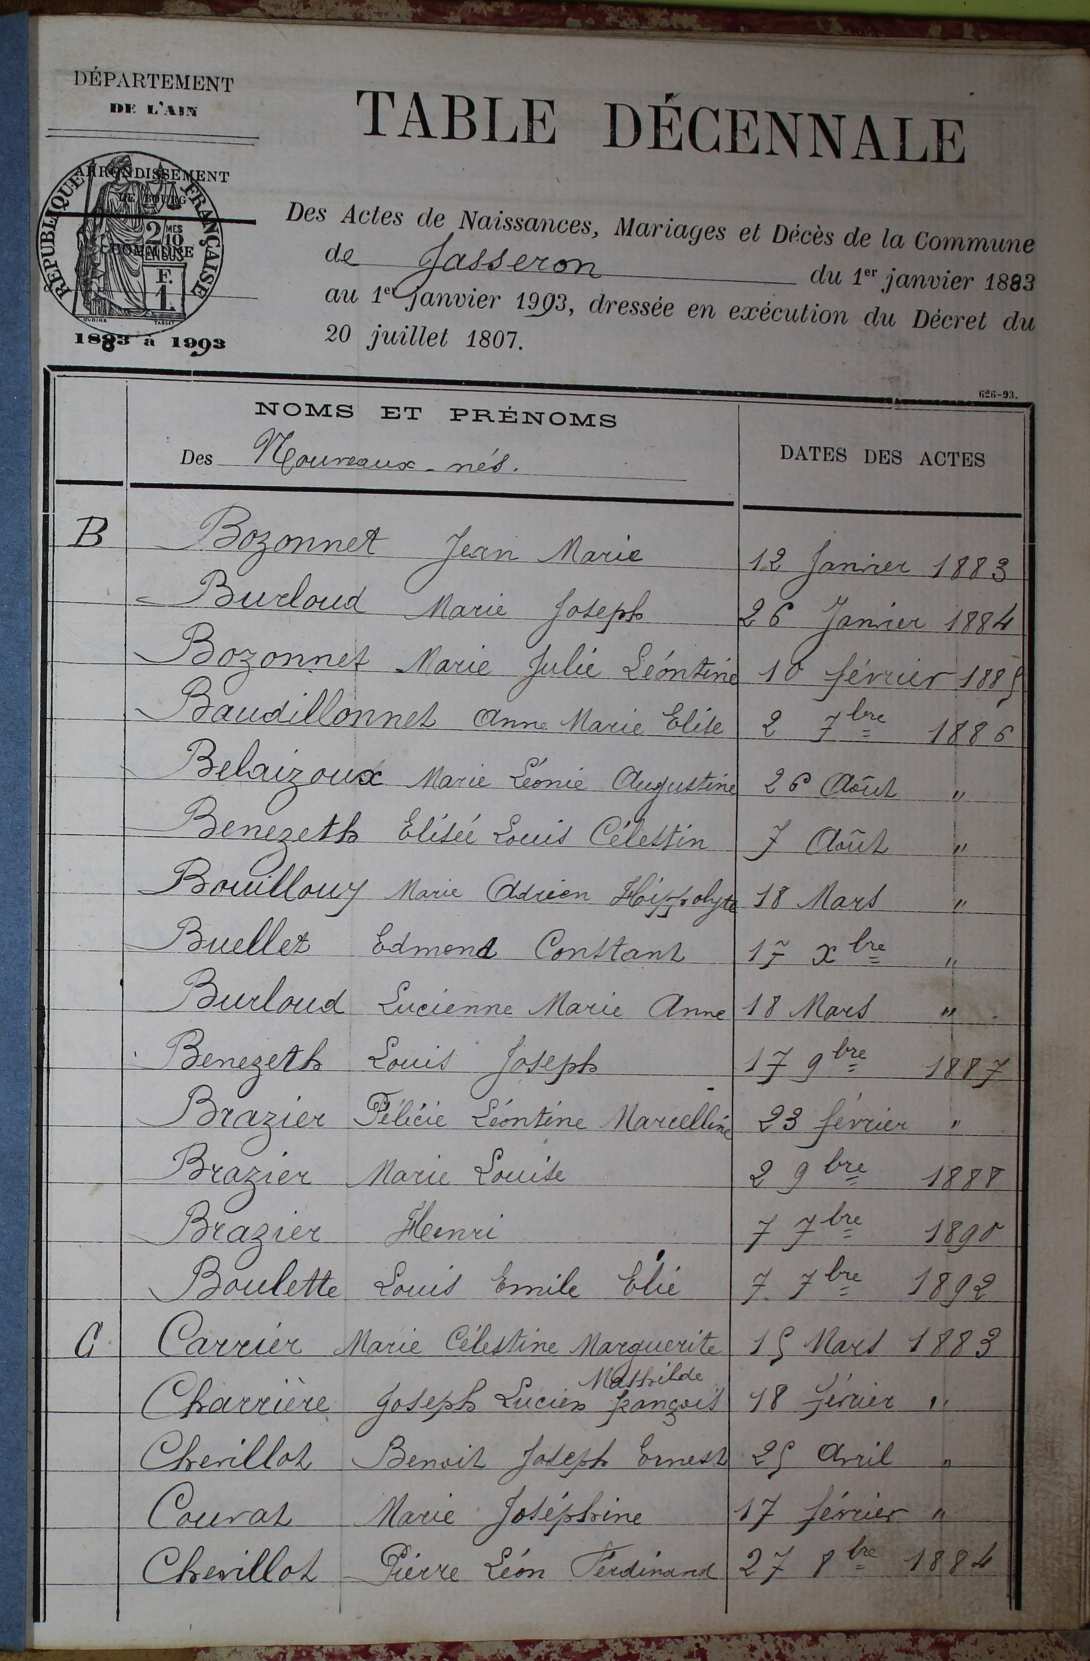 DÉPARTEMENT
DE L'AIN
TABLE DÉCENNALE
ARRONDISSEMENT
DE BOURG
RÉPUBLIQUE FRANÇAISE
2/10 MES
EN SUS
COMMUNE
F.
1.
1883 à 1903
Des Actes de Naissances, Mariages et Décès de la Commune
de Jasseron du 1er janvier 1883
au 1er janvier 1903, dressée en exécution du Décret du
20 juillet 1807.
626-93.
NOMS ET PRÉNOMS
Des Nouveaux-nés.
DATES DES ACTES
B Bozonnet Jean Marie 12 Janvier 1883
Burloud Marie Joseph 26 Janvier 1884
Bozonnet Marie Julie Léontine 10 février 1885
Baudillonnet Anne Marie Elise 2 7bre 1886
Belaizoux Marie Léonie Augustine 26 Août "
Benezeth Elisée Louis Célestin 7 Août "
Bouillouy Marie Adrien Hippolyte 18 Mars "
Buellet Edmond Constant 17 xbre "
Burloud Lucienne Marie Anne 18 Mars "
Benezeth Louis Joseph 17 9bre 1887
Brazier Félicie Léontine Marcelline 23 février "
Brazier Marie Louise 2 9bre 1888
Brazier Henri 7 7bre 1890
Boulette Louis Emile Elie 7 7bre 1892
C Carrier Marie Célestine Marguerite 15 Mars 1883
Mathilde
Charrière Joseph Lucien françois 18 février "
Chevillot Benoit Joseph Ernest 25 Avril "
Courat Marie Joséphine 17 février "
Chevillot Pierre Léon Ferdinand 27 8bre 1884